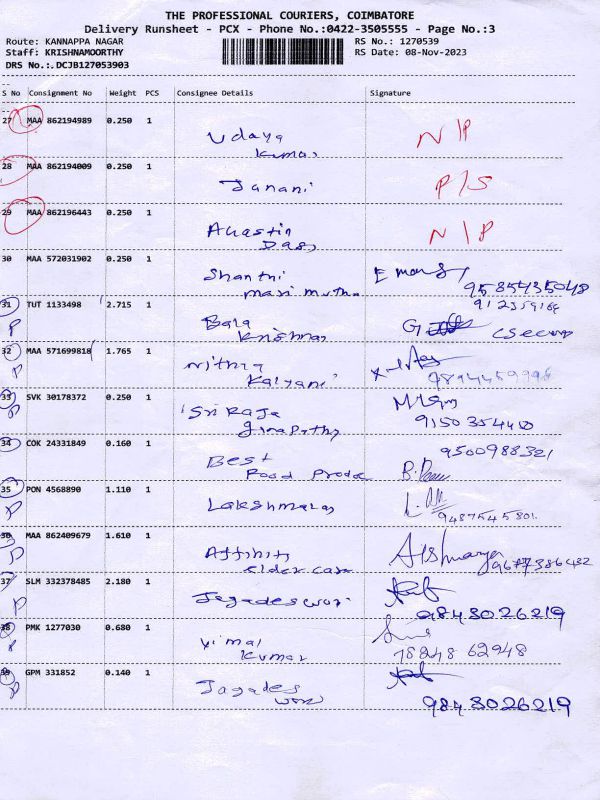 THE PROFESSIONAL COURIERS, COIMBATORE
Delivery Runsheet - PCX - Phone No.:0422-3505555 - Page No.:3
Route: KANNAPPA NAGAR RS No.: 1270539
Staff: KRISHNAMOORTHY RS Date: 08-Nov-2023
DRS No.:.DCJB127053903
S No Consignment No Weight PCS Consignee Details Signature
27 MAA 862194989 0.250 1
Udaya N/P
Kumar
28 MAA 862194009 0.250 1
Janani P/S
29 MAA 862196443 0.250 1
Das N/P
30 MAA 572031902 0.250 1
Shanthi
9585435048
31 TUT 1133498 2.715 1
Bala
Krishnan
P
32 MAA 571699818 1.765 1
Nithya
Kalyani
P
33 SVK 30178372 0.250 1
Sri Raja
P 9150354410
34 COK 24331849 0.160 1 9500988321
Best
Food
35 PON 4568890 1.110 1
P 9487545801
36 MAA 862409679 1.610 1
Affinity
elder care 9677386432
P
37 SLM 332378485 2.180 1
P Jagadeswari
9843026219
38 PMK 1277030 0.680 1
Vimal
Kumar 78248 62948
39 GPM 331852 0.140 1
P Jagades
wari 9843026219